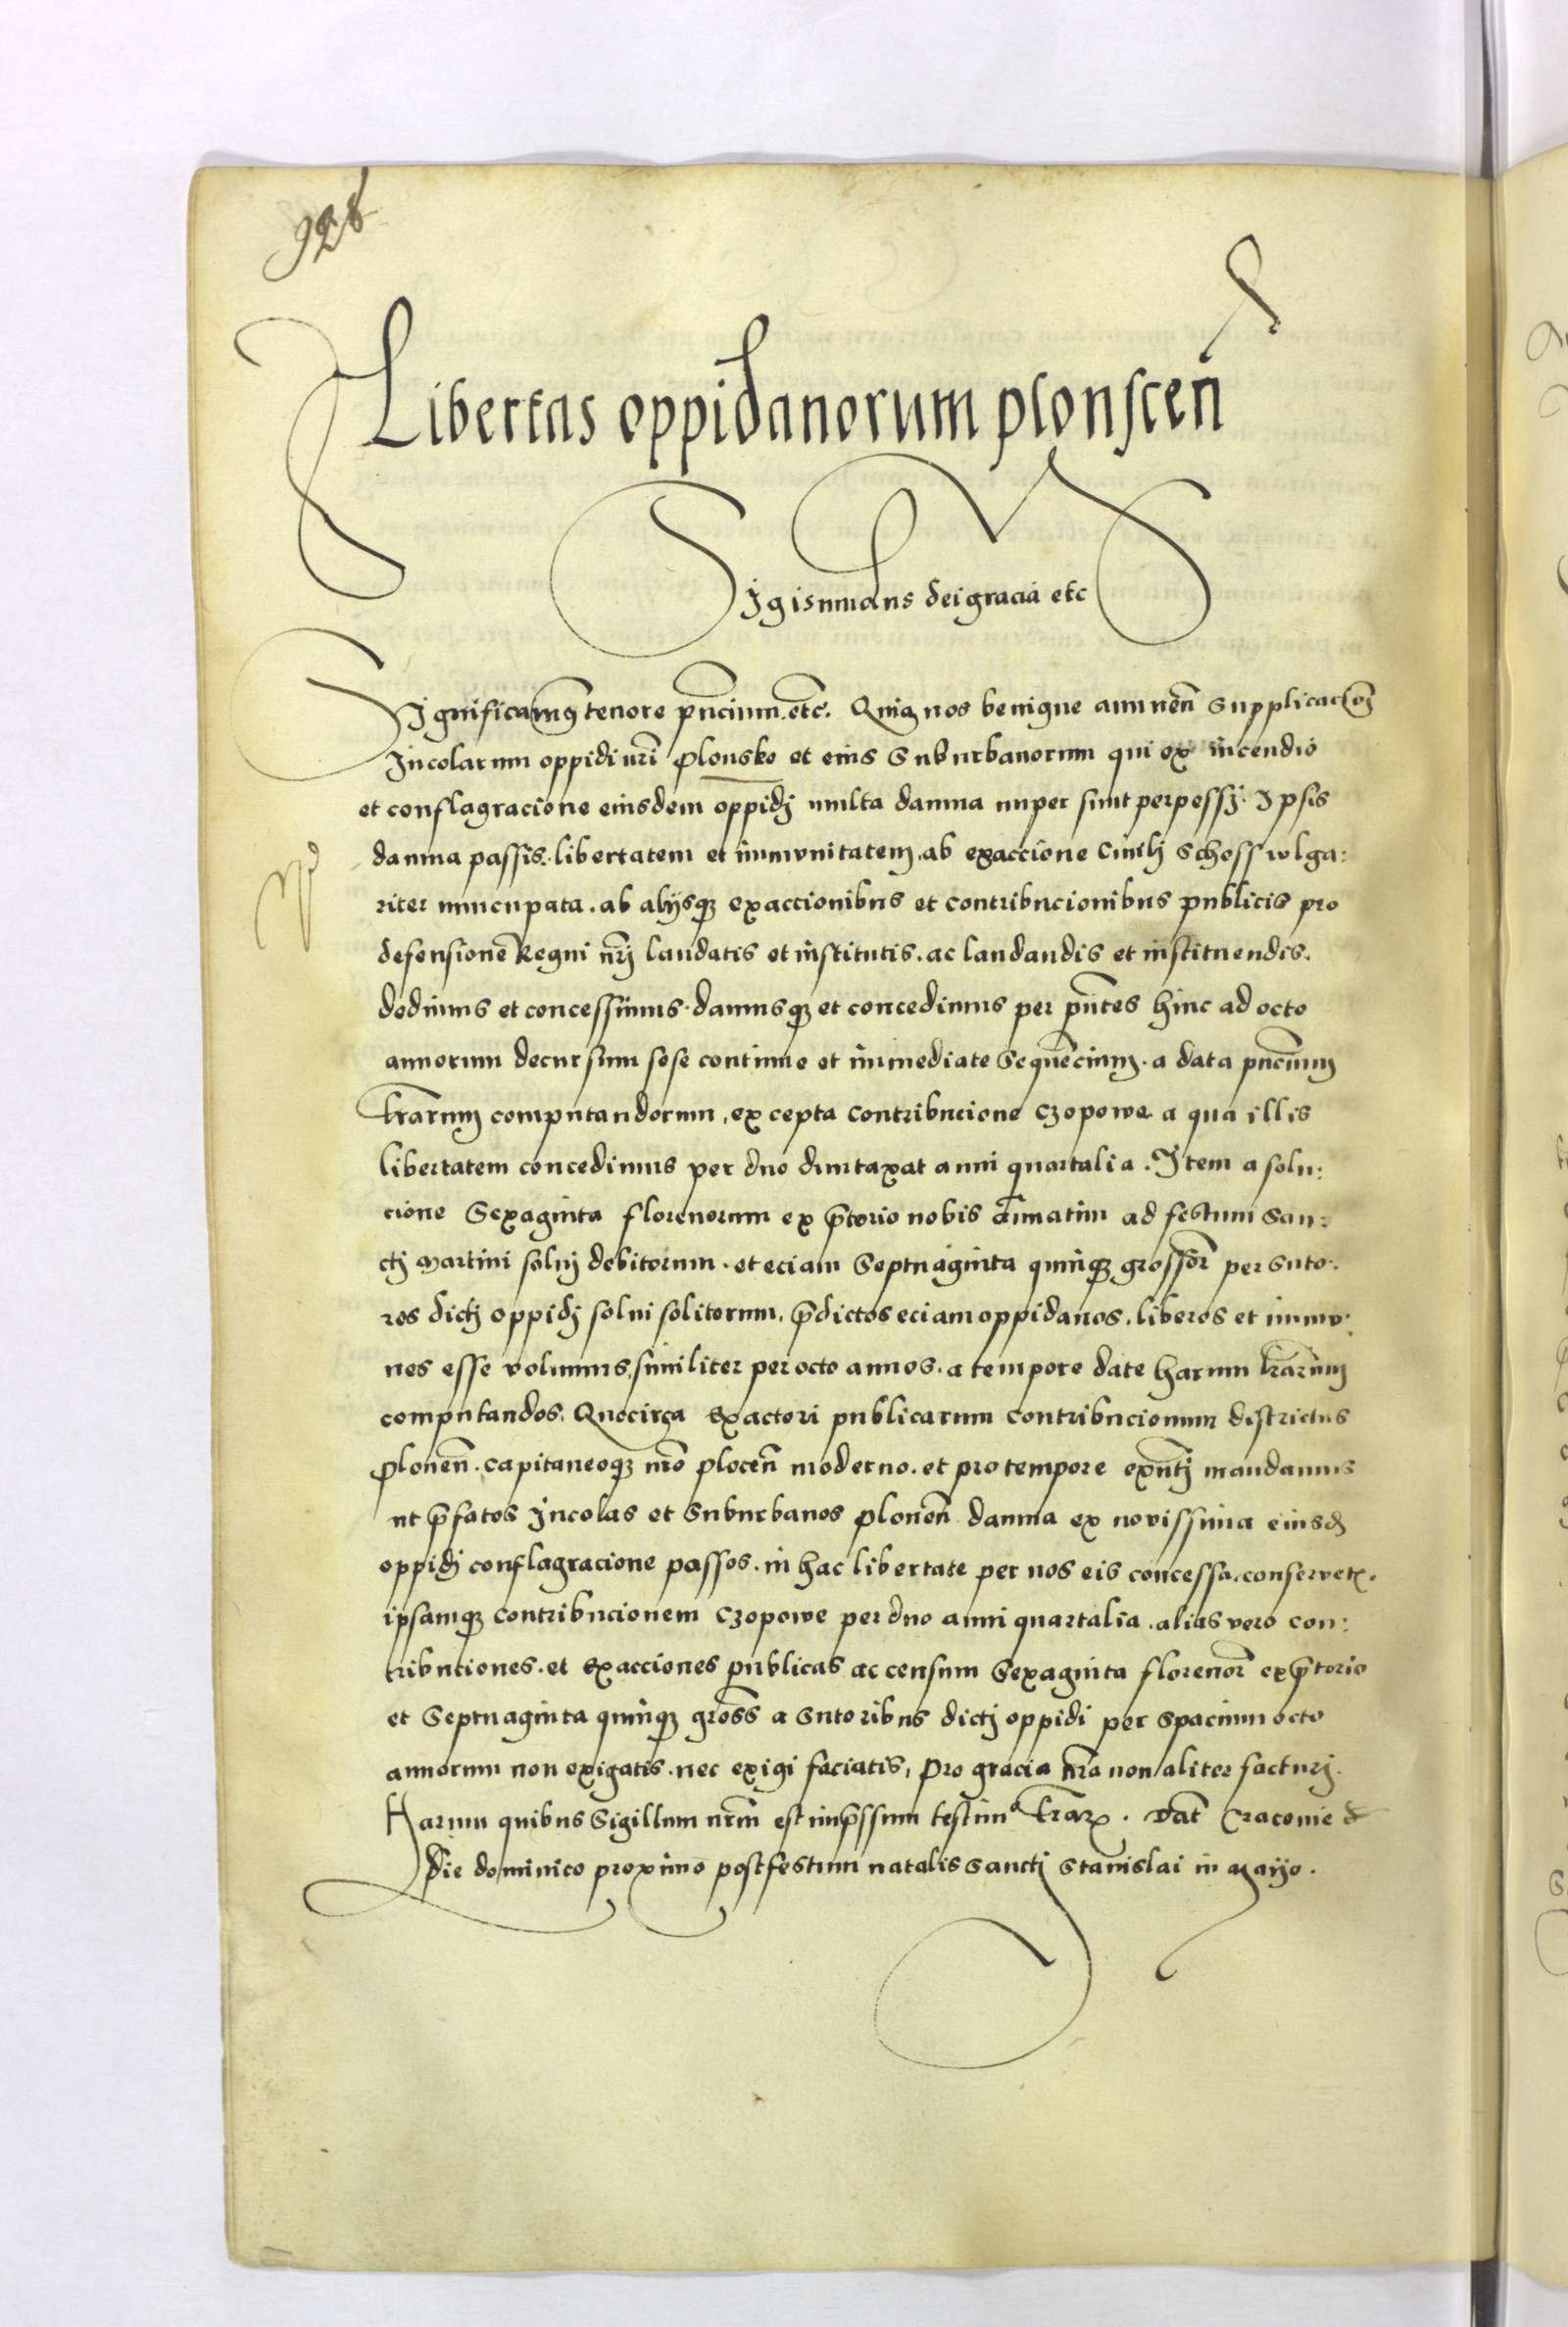 928
Libertas oppidanorum plonscen̄
Sigismundus dei gracia etc
Significamus tenore pn̄cium etc. Quia nos benigne annuen̄ supplicacioni
Incolarum oppidi nr̄i Plonsko et eius Suburbanorum qui ex incendio
et conflagracione eiusdem oppidj multa damna nuper sunt perpessj. Ipsis
damna passis. libertatem et immvnitatem. ab exaccione Ciuilj Schoss wlga:
riter nuncupata. ab alijsqȝ exaccionibus et contribucionibus publicis pro
defensionē Regni nr̄j laudatis et institutis. ac laudandis et instituendis.
dedimus et concessimus. damusqȝ et concedimus per pn̄tes hinc ad octo
annorum decursum sese continue et immediate Sequēncium. a data pn̄cium
lr̄arum computandorum, excepta contribucione Czopowe a qua illis
libertatem concedimus per duo duntaxat anni quartalia. Item a solu:
cione Sexaginta florenorum ex p̄torio nobis annatim ad festum San:
ctj Martini soluj debitorum. et eciam Septuaginta quinqȝ grossor̄ per suto:
res dictj oppidj solui solitorum, p̄dictos eciam oppidanos, liberos et immv:
nes esse volumus, similiter per octo annos. a tempore date harum lr̄arum
computandos. Quocirca Exactori publicarum contribucionum districtus
Plonen̄. capitaneoqȝ nr̄o plocen̄ moderno. et pro tempore exn̄tj mandamus
ut p̄fatos Incolas et Suburbanos Plonen̄ damna ex novissima eiusd
oppidj conflagracione passos. in hac libertate per nos eis concessa. conseruet.
ipsamqȝ contribucionem Czopowe per duo anni quartalia. alias vero con:
tribuciones. et Exacciones publicas ac censum Sexaginta florenor̄ ex p̄torio
et Septuaginta quinqȝ gross̄ a Sutoribus dictj oppidi per spacium octo
annorum non exigatis. nec exigi faciatis, pro gracia nr̄a non aliter facturj.
Harum quibus Sigillum nr̄m est imp̄ssum testimo lr̄ar. Dat̄ Cracouie
die dominico proximo post festum natalis sanctj Stanislai in Mayo.